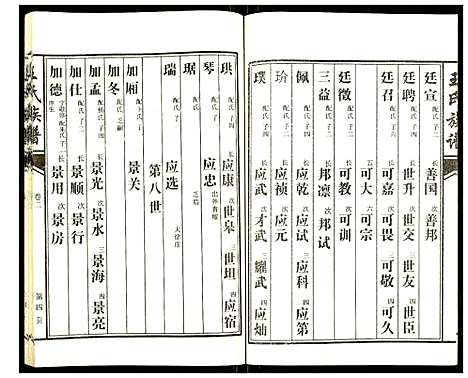 王氏族谱
廷宣 配氏 子二 长 善国 次 善邦
廷聘 配氏 子四 长 世升 次 世交 三 世友 四 世臣
廷召 配氏 子六 长 可嘉 次 可畏 三 可敬 四 可久
五 可大 六 可宗
廷徵 配氏 子二 长 可教 次 可训
三益 配氏 子二 长 邦凛 次 邦试
佩 配氏 子四 长 应乾 次 应试 三 应科 四 应第
玠 配氏 子二 长 应祯 次 应元
璞 配氏 子四 长 应武 次 才武 三 耀武 四 应灿
珙 配氏 子四 长 应康 次 世皋 三 世坦 四 应宿
琴 配氏 子一 应忠 出外
琚 配氏
瑞 配氏 子一 应选
第八世
加厢 配氏 子一 景关
加冬 配氏
加孟 配氏 子四 长 景光 次 景水 三 景海 四 景亮
加仕 配氏 子二 长 景顺 次 景行
加德 配朱氏 子二 长 景用 次 景房
王氏族谱
卷二
第四页